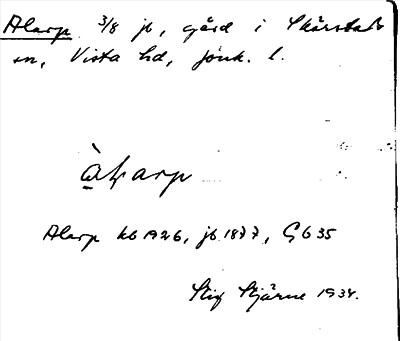 Alarp 3/8 jb, gård i Skärstads
sn, Vista hd, Jönk. l.
Alarp kb 1926, jb 1877, G 635
Stig Stjärne 1934.